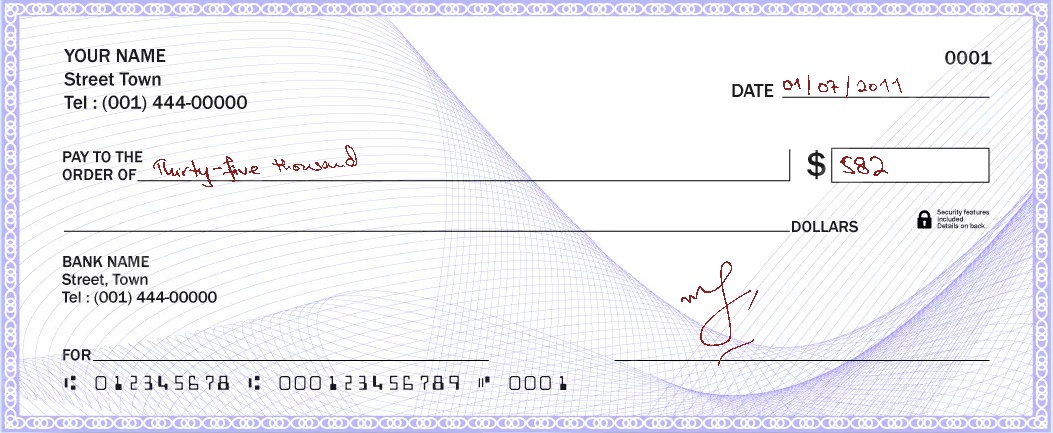 YOUR NAME
0001
Street Town
DATE 01/07/2011
Tel : (001) 444-00000
PAY TO THE
ORDER OF Thirty-five thousand
$ 582
DOLLARS
Security features
included.
Details on back.
BANK NAME
Street, Town
Tel : (001) 444-00000
FOR
⑆ 012345678 ⑆ 000123456789 ⑈ 0001